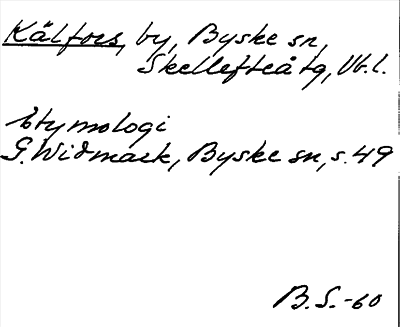 Kälfors, by, Byske sn,
Skellefteå tg, Vb.l.
Etymologi
G. Widmark, Byske sn, s. 49
B.S.-60